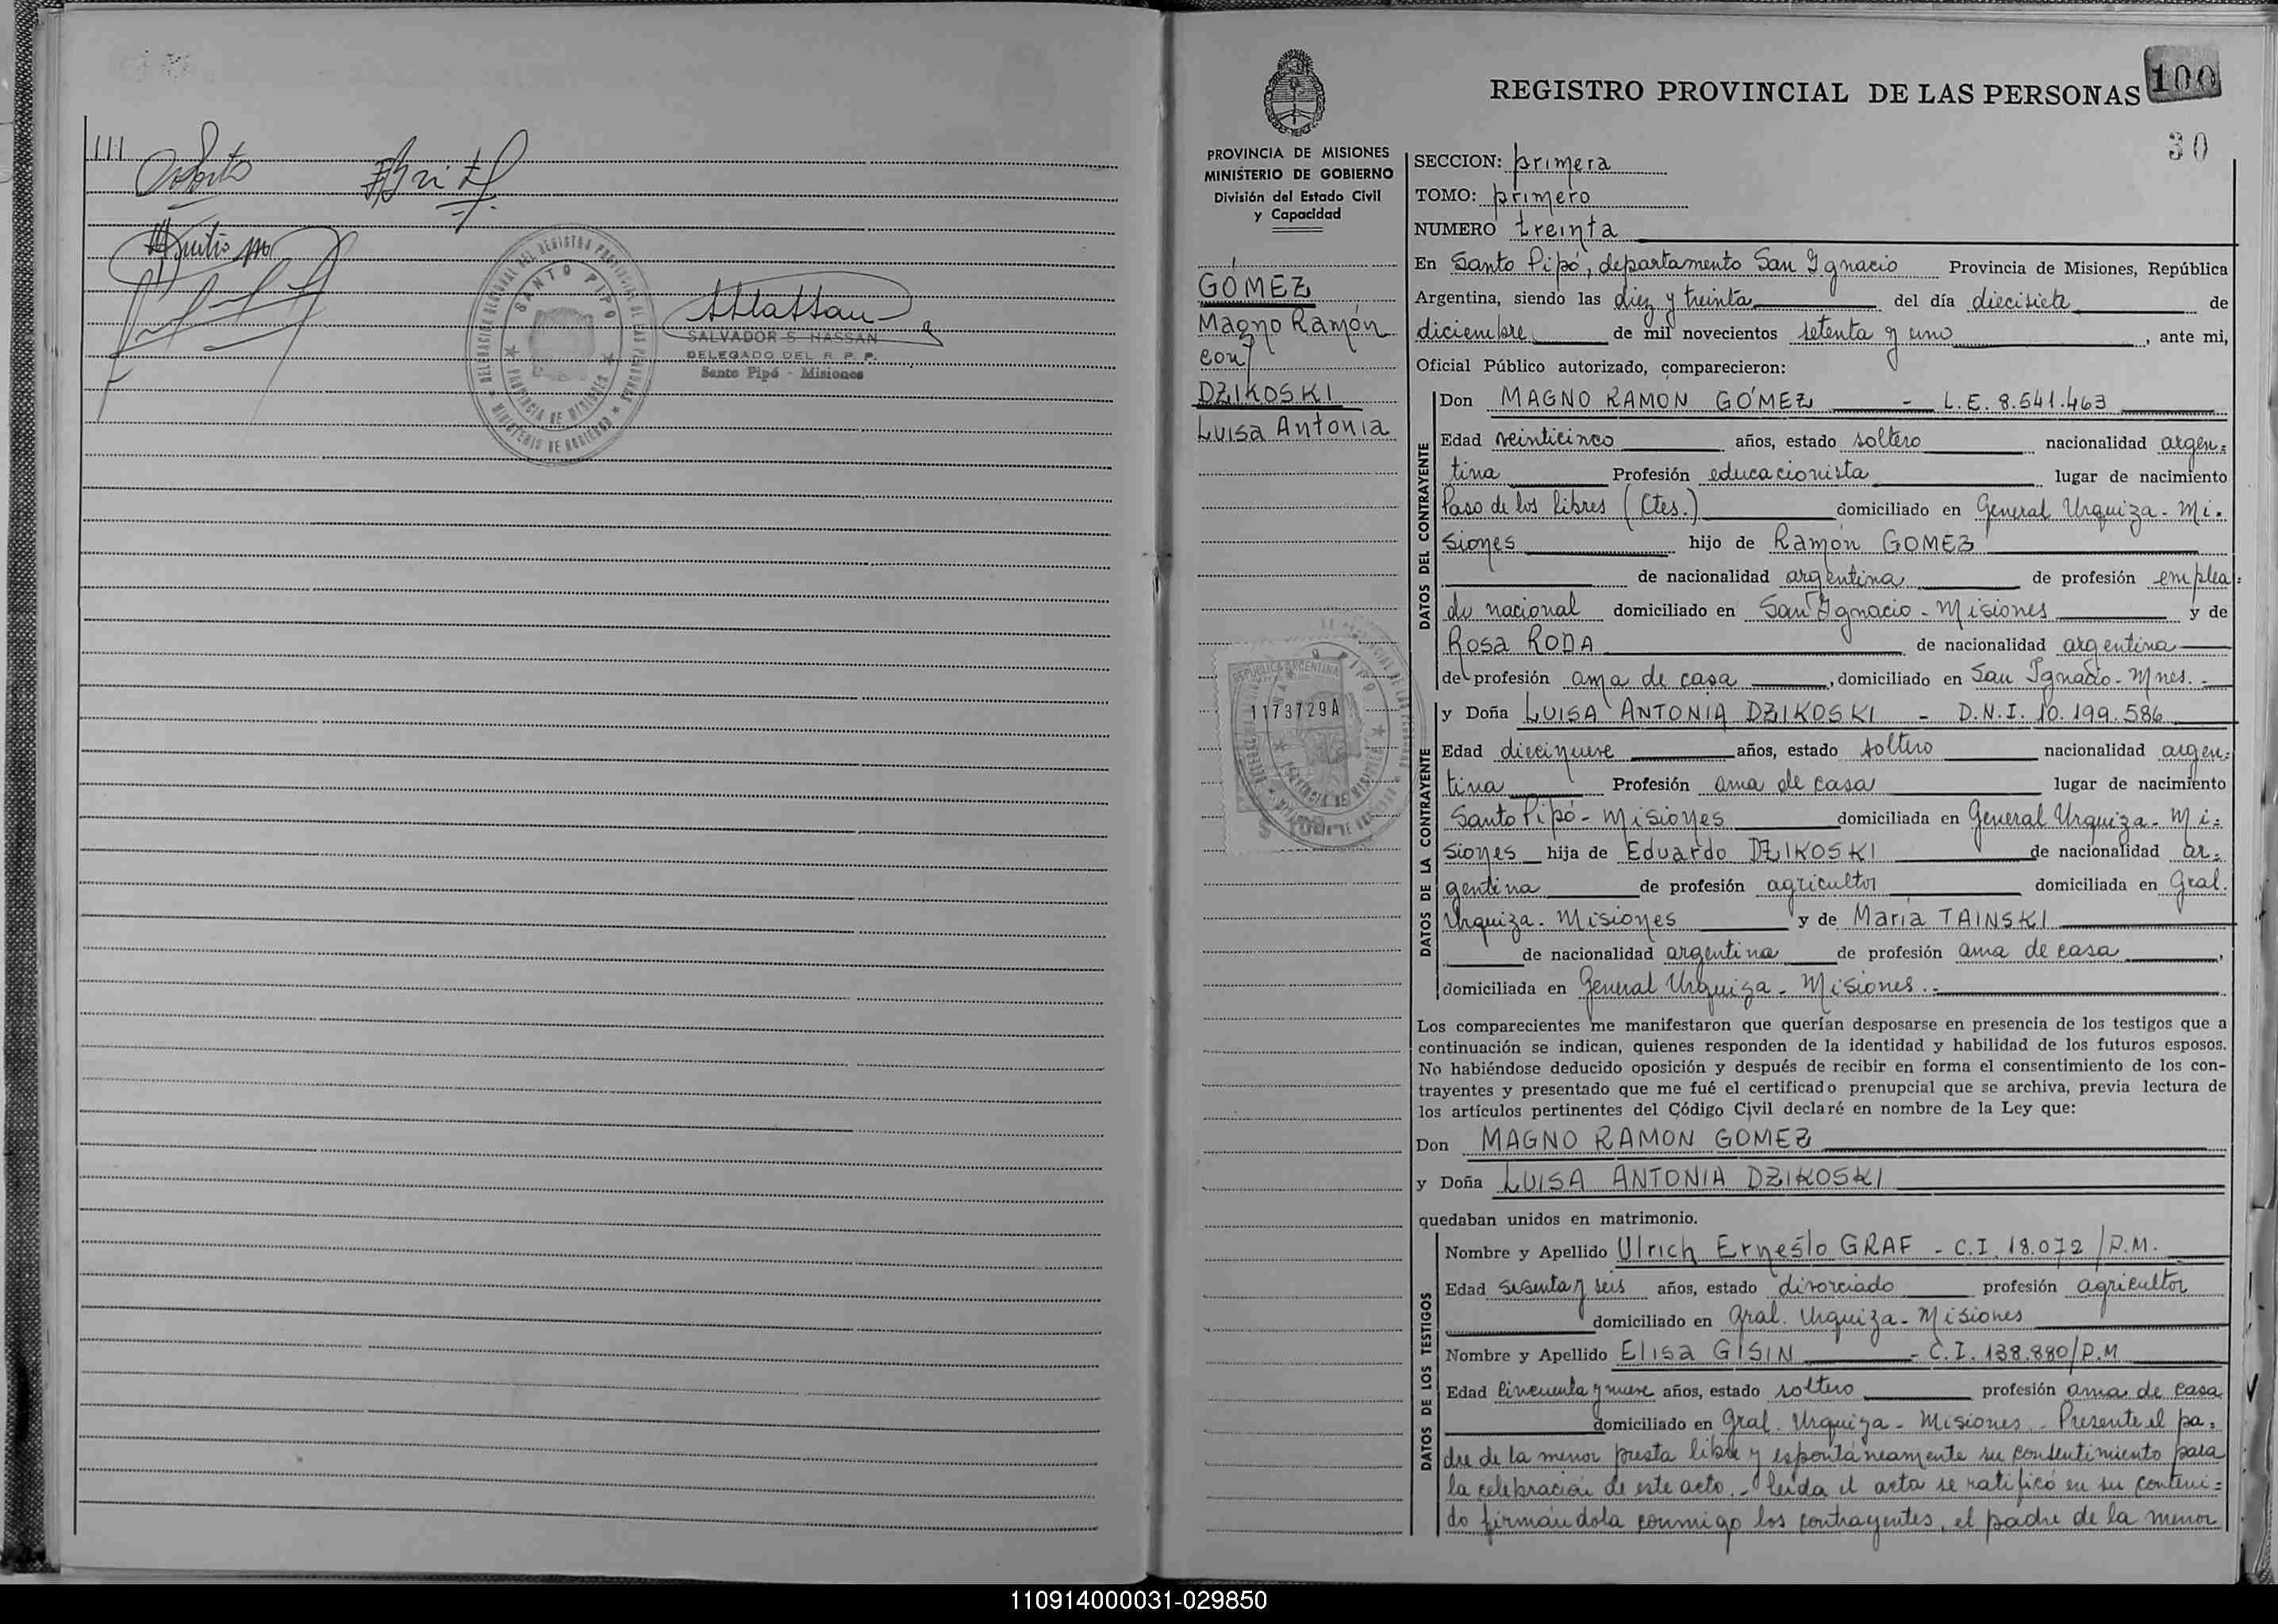 111
SALVADOR S. HASSAN
DELEGADO DEL R. P. P.
Santo Pipó - Misiones
DELEGACION SECCIONAL DEL REGISTRO PROVINCIAL DE LAS PERSONAS
SANTO PIPO
PROVINCIA DE MISIONES
MINISTERIO DE GOBIERNO
REGISTRO PROVINCIAL DE LAS PERSONAS
100
30
PROVINCIA DE MISIONES
MINISTERIO DE GOBIERNO
División del Estado Civil
y Capacidad
GOMEZ
Magno Ramón
con
DZIKOSKI
Luisa Antonia
REPUBLICA ARGENTINA
1173729A
SECCION: primera
TOMO: primero
NUMERO treinta
En Santo Pipó, departamento San Ignacio Provincia de Misiones, República
Argentina, siendo las diez y treinta del día diecisiete de
diciembre de mil novecientos setenta y uno, ante mi,
Oficial Público autorizado, comparecieron:
DATOS DEL CONTRAYENTE
Don MAGNO RAMON GÓMEZ - L.E. 8.541.463
Edad veinticinco años, estado soltero nacionalidad argen=
tina Profesión educacionista lugar de nacimiento
Paso de los Libres (Ctes.) domiciliado en General Urquiza - Mi=
siones hijo de Ramón GOMEZ
de nacionalidad argentina de profesión emplea=
do nacional domiciliado en San Ignacio - Misiones y de
Rosa RODA de nacionalidad argentina
de profesión ama de casa, domiciliado en San Ignacio - Mnes. -
DATOS DE LA CONTRAYENTE
y Doña LUISA ANTONIA DZIKOSKI - D.N.I. 10.199.586
Edad diecinueve años, estado soltero nacionalidad argen=
tina Profesión ama de casa lugar de nacimiento
Santo Pipó - Misiones domiciliada en General Urquiza - Mi=
siones hija de Eduardo DZIKOSKI de nacionalidad ar=
gentina de profesión agricultor domiciliada en Gral.
Urquiza - Misiones y de María TAINSKI
de nacionalidad argentina de profesión ama de casa,
domiciliada en General Urquiza - Misiones. -
Los comparecientes me manifestaron que querían desposarse en presencia de los testigos que a
continuación se indican, quienes responden de la identidad y habilidad de los futuros esposos.
No habiéndose deducido oposición y después de recibir en forma el consentimiento de los con-
trayentes y presentado que me fué el certificado prenupcial que se archiva, previa lectura de
los artículos pertinentes del Código Civil declaré en nombre de la Ley que:
Don MAGNO RAMON GOMEZ
y Doña LUISA ANTONIA DZIKOSKI
quedaban unidos en matrimonio.
DATOS DE LOS TESTIGOS
Nombre y Apellido Ulrich Ernesto GRAF - C.I. 18.072/P.M.
Edad sesenta y seis años, estado divorciado profesión agricultor
domiciliado en Gral. Urquiza - Misiones
Nombre y Apellido Elisa GISIN - C.I. 138.880/P.M
Edad cincuenta y nueve años, estado soltero profesión ama de casa
domiciliado en Gral. Urquiza - Misiones. - Presente el pa=
dre de la menor presta libre y espontáneamente su consentimiento para
la celebración de este acto. - Leída el acta se ratificó en su conteni=
do firmándola conmigo los contrayentes, el padre de la menor
110914000031-029850